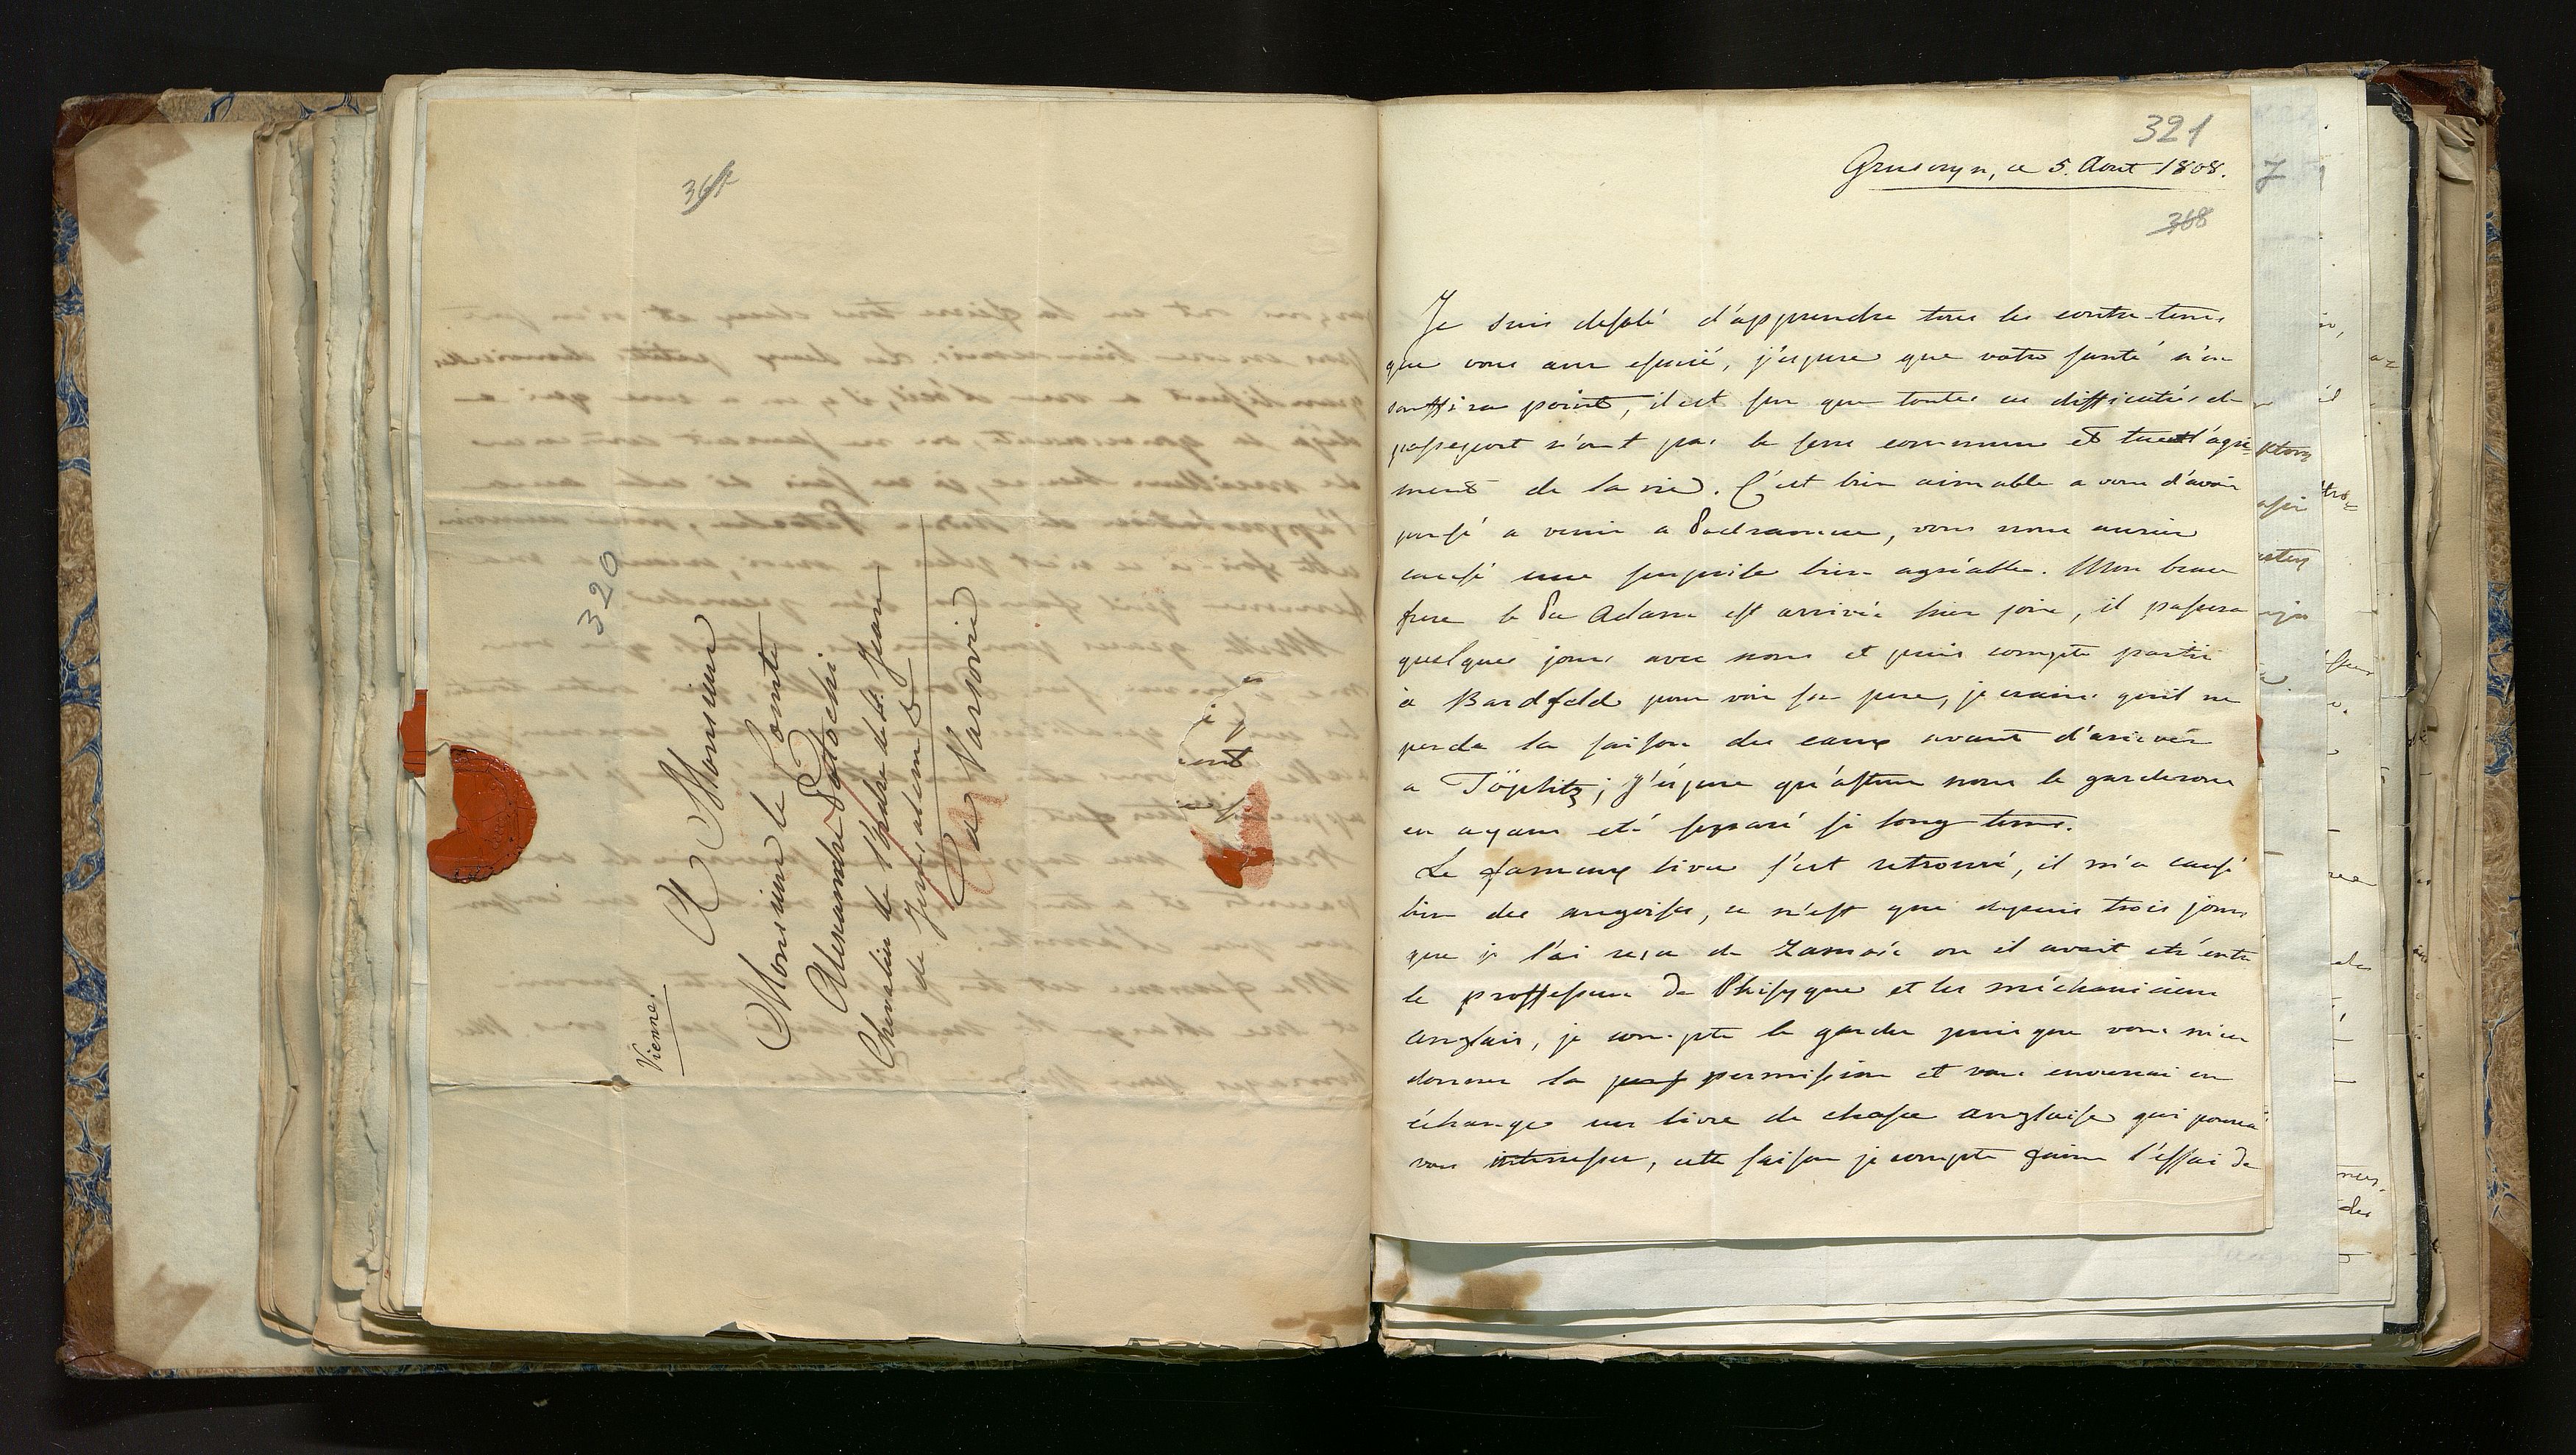 367
320
Vienne.
A Monsieur
Monsieur le Comte
Alexandre Potocki
Chevalier de l'ordre de St. Jean
de Jerusalem &
a Varsovie
321
ce 5. Aout 1808.
368
Je suis desolé d'apprendre tous les contre-tems
que vous avez essuié, j'espere que votre santé n'en
souffrira point, il est sur que toutes ces difficultés de
passeport n'ont pas le sens commun et tuent l'agré=
ment de la vie. C'est bien aimable a vous d'avoir
pensé a venir a vous nous auriez
causé une surprise bien agréable. Mon beau
frere le Pce Adam est arrivée hier soir, il passera
quelques jours avec nous et puis compte partir
à Bardfeld pour voir son pere, je crains qu'il ne
perde la saison des eaux avant d'arriver
a Töplitz; j'éspere qu'asture nous le garderons
en ayant eté separé si long tems.
Le fameux livre s'est retrouvé, il m'a causé
bien des angoises, ce n'est que depuis trois jours
que je l'ai reçu de Zamość ou il avait eté entre
le proffesseur de Phisyque et les méchaniciens
anglais, je compte le garder puisque vous m'en
donnez la permission et vous enverrai en
échange un livre de chasse anglaise qui pourra
vous interresser, cette saison je compte faire l'essai de